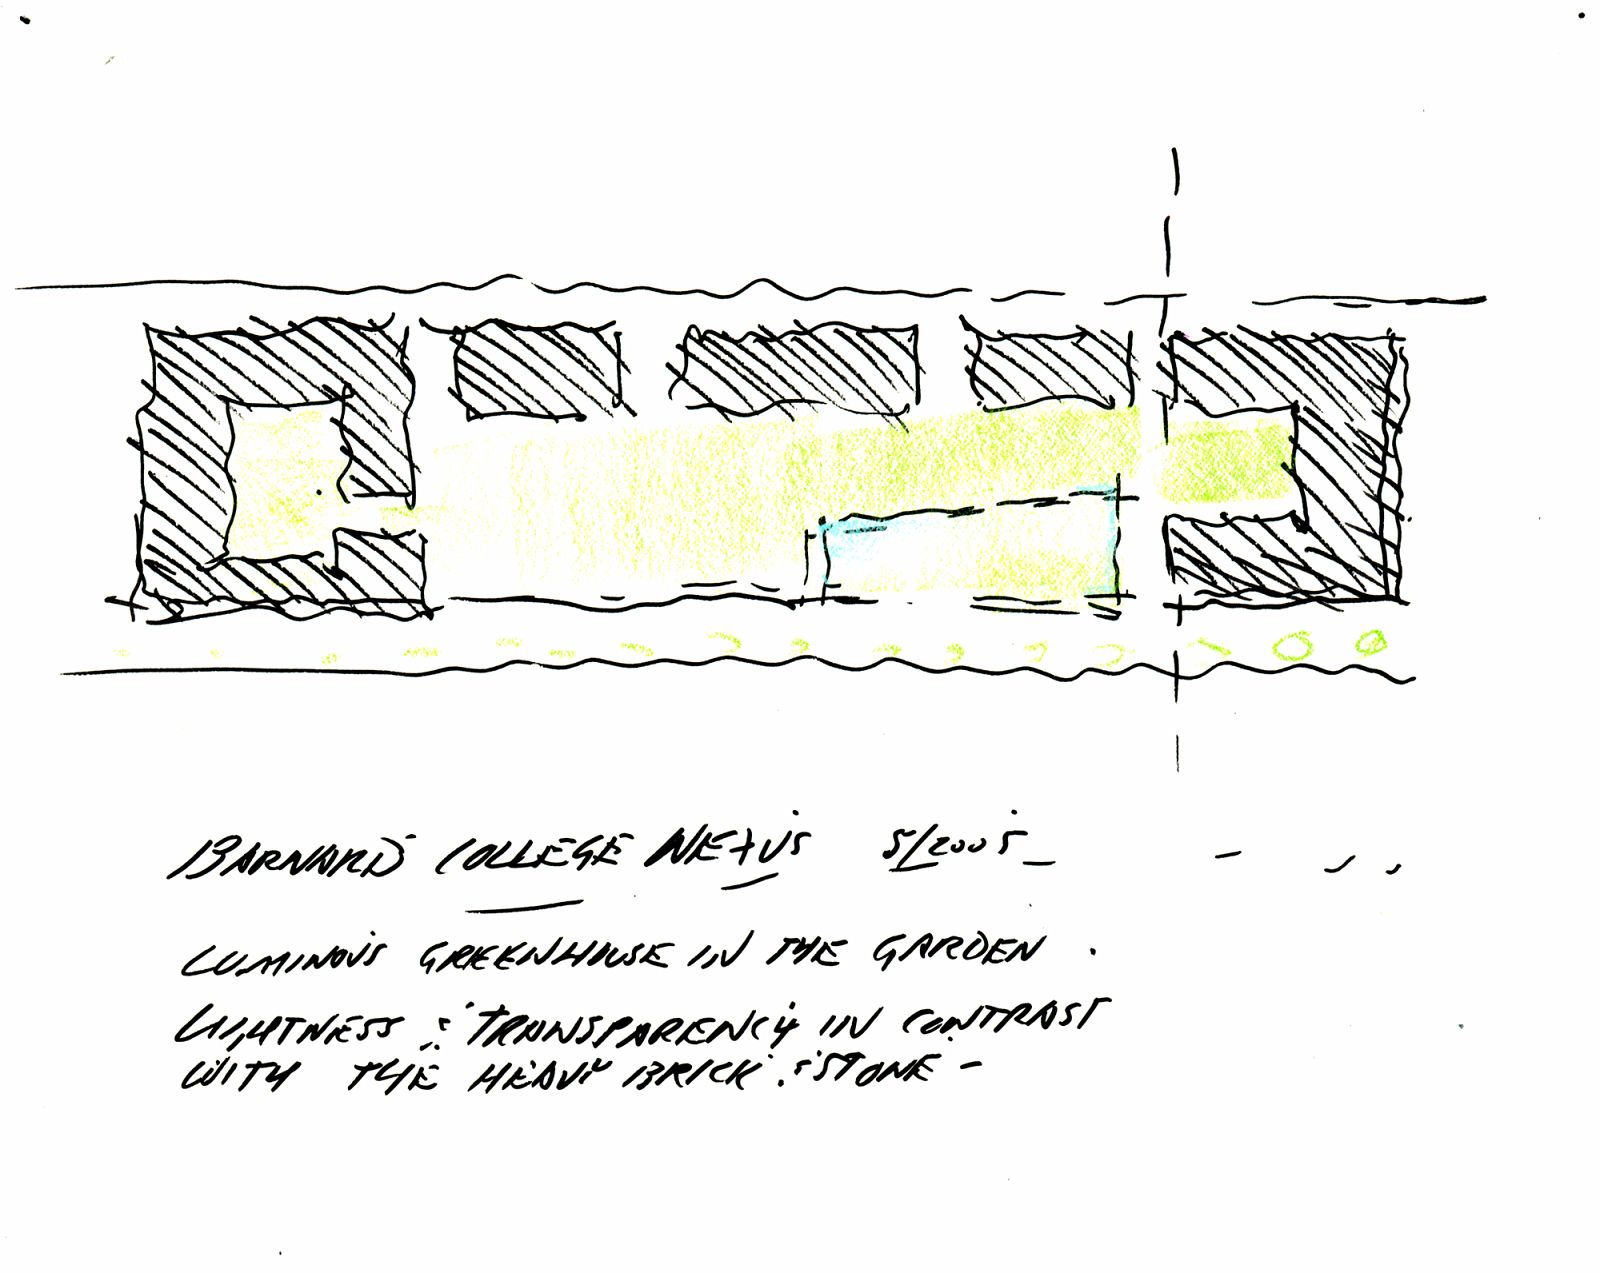 BARNARD COLLEGE NEXUS 5/2005
LUMINOUS GREENHOUSE IN THE GARDEN.
LIGHTNESS & TRANSPARENCY IN CONTRAST
WITH THE HEAVY BRICK & STONE –